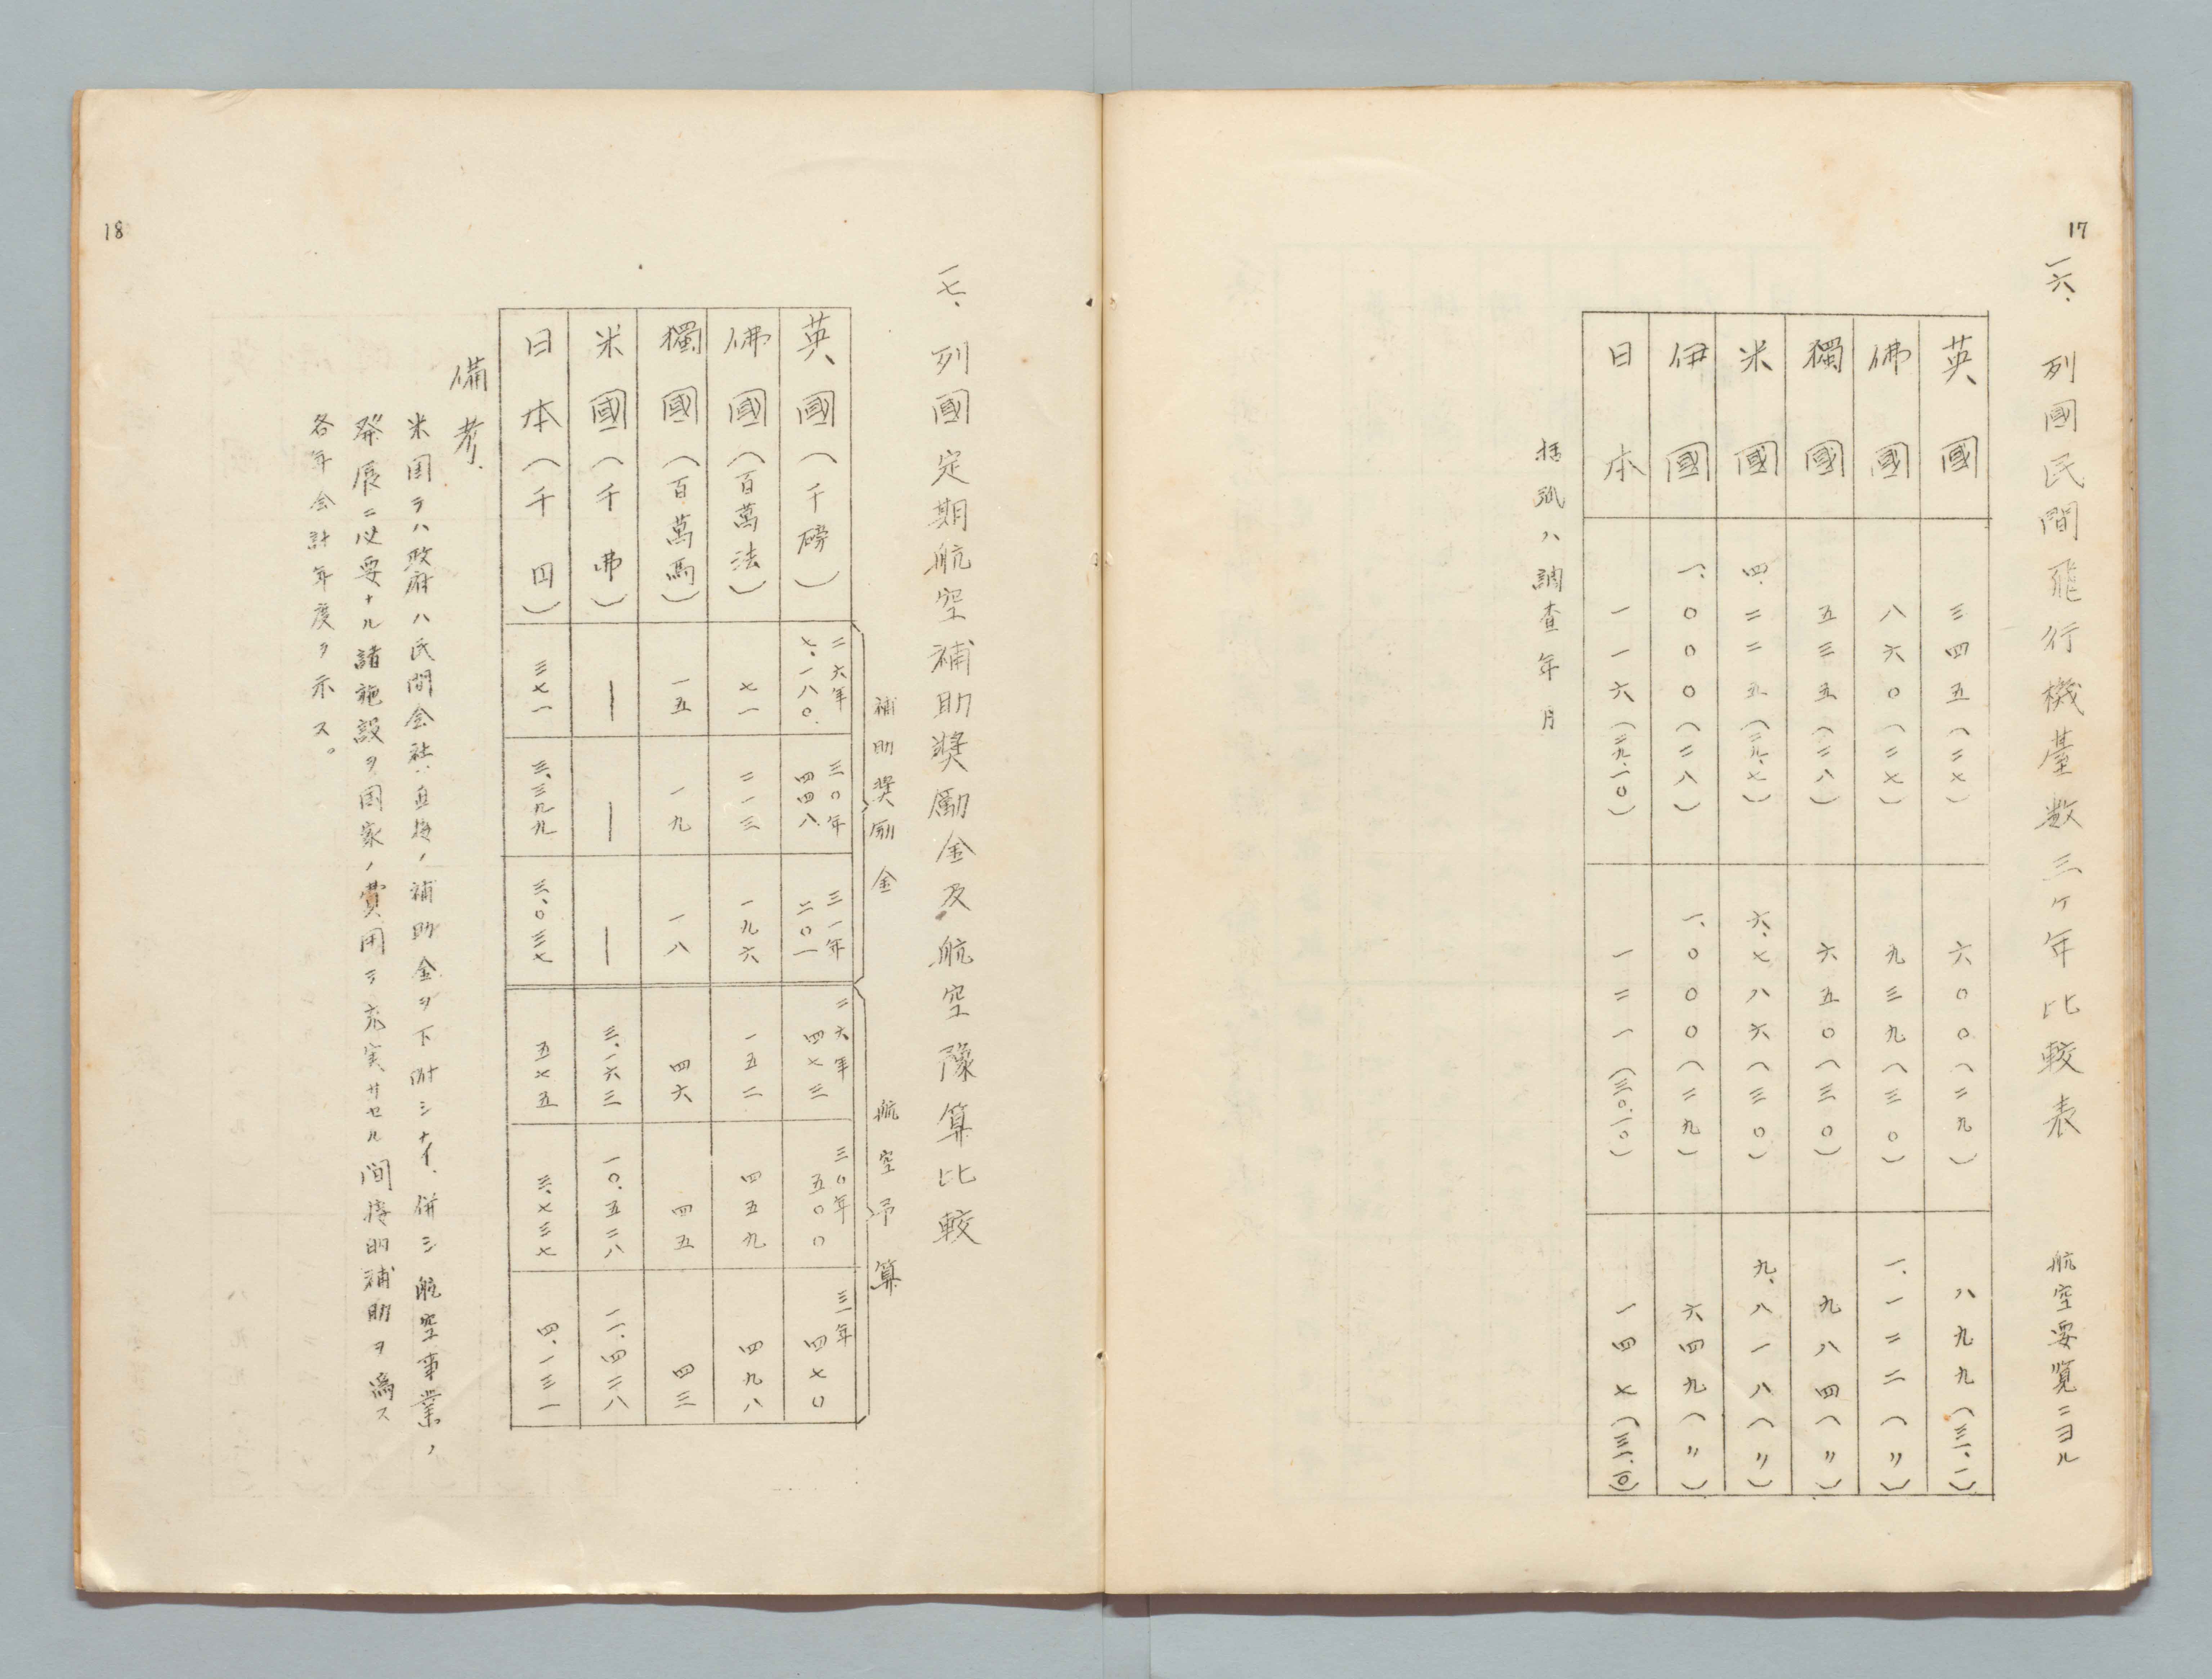 17
一六、列國民間飛行機臺数三ヶ年比較表　航空要覧ニヨル
英國　三四五(二七)　六〇〇(二九)　八九九(三一、一)
佛國　八六〇(二七)　九三九(三〇)　一、一二二(〃)
獨國　五三五(二八)　六五〇(三〇)　九八四(〃)
米國　四、二二五(二九、七)　六、七八六(三〇)　九、八一八(〃)
伊國　一、〇〇〇(二八)　一、〇〇〇(二九)　六四九(〃)
日本　一一六(二九、一〇)　一二一(三〇、一〇)　一四七(三一、一〇)
括弧ハ調査年月
18
一七、列國定期航空補助奬勵金及航空豫算比較
補助奬励金　航空予算
二六年　三〇年　三一年　二六年　三〇年　三一年
英國(千磅)　七、一八〇　四四八　二〇一　四七三　五〇〇　四七〇
佛國(百萬法)　七一　二一三　一九六　一五二　四五九　四九八
獨國(百萬馬)　一五　一九　一八　四六　四五　四三
米國(千弗)　―　―　―　三、一六三　一〇、五二八　一一、四二八
日本(千円)　三七一　三、三九九　三、〇三七　五七五　三、七三七　四、一三一
備考、
米国ヲハ政府ハ民間会社ニ直接ノ補助金ヲ下附シナイ、併シ航空事業ノ
発展ニ必要ナル諸施設ヲ国家ノ費用ヲ充実サセル間接的補助ヲ爲ス
各年会計年度ヲ示ス。